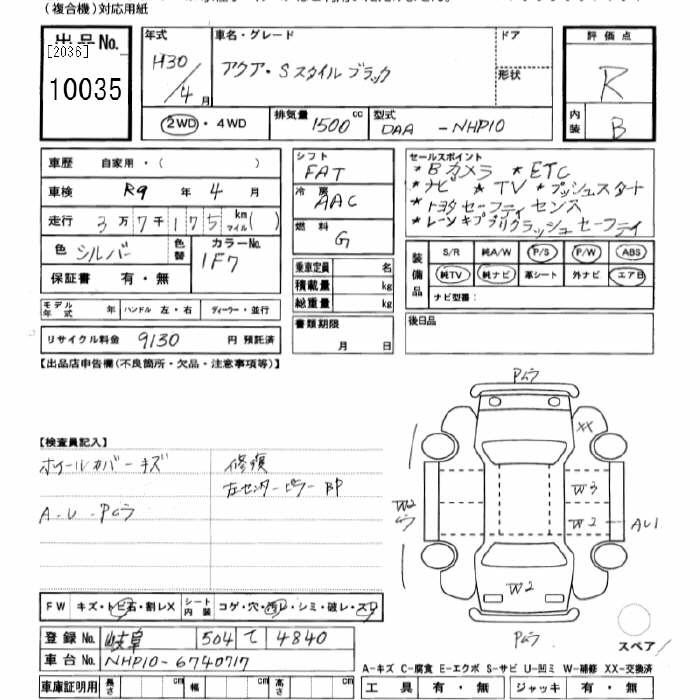 (複合機)対応用紙
出品No.
[2036]
10035
年式
H30/4月
車名・グレード
アクア・Sスタイルブラック
ドア
形状
評価点
R
内装
B
2WD・4WD
排気量 1500 cc
型式 DAA - NHP10
車歴 自家用・( )
車検 R9 年 4 月
走行 3万7千175 km マイル( )
色 シルバー 色替 カラーNo. 1F7
保証書 有・無
シフト FAT
冷房 AAC
燃料 G
乗車定員 名
積載量 kg
総重量 kg
書類期限
月 日
セールスポイント
*Bカメラ *ETC
*ナビ *TV *プッシュスタート
*トヨタセーフティセンス
*レーンキププリクラッシュセーフティ
装備品
S/R 純A/W P/S P/W ABS
純TV 純ナビ 革シート 外ナビ エアB
ナビ型番:
後日品
モデル年式 年 ハンドル 左・右 ディーラー・並行
リサイクル料金 9130 円 預託済
【出品店申告欄(不良箇所・欠品・注意事項等)】
【検査員記入】
ホイールカバーキズ 修復
左センターピラーBP
A.U.Pムラ
Pムラ
XX
W3
W2
W2ムラ
AU1
W2
Pムラ
スペア
FW キズ・トビ石・割レX シート内装 コゲ・穴・汚レ・シミ・破レ・スレ
登録No. 岐阜 504 て 4840
車台No. NHP10-6740717
車庫証明用 長さ cm 幅 cm 高さ cm
A-キズ C-腐食 E-エクボ S-サビ U-凹ミ W-補修 XX-交換済
工具 有・無 ジャッキ 有・無